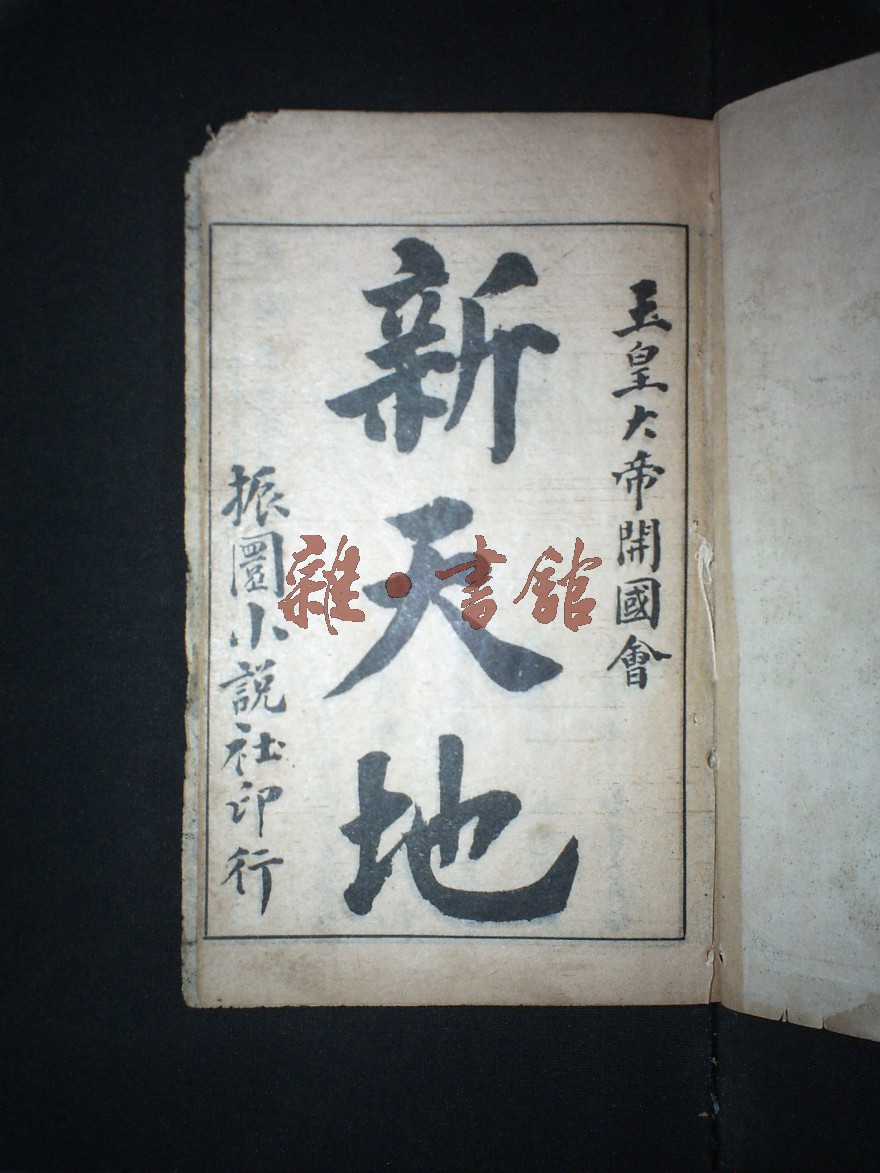 玉皇大帝開國會
新天地
振圜小說社印行
雜·書館